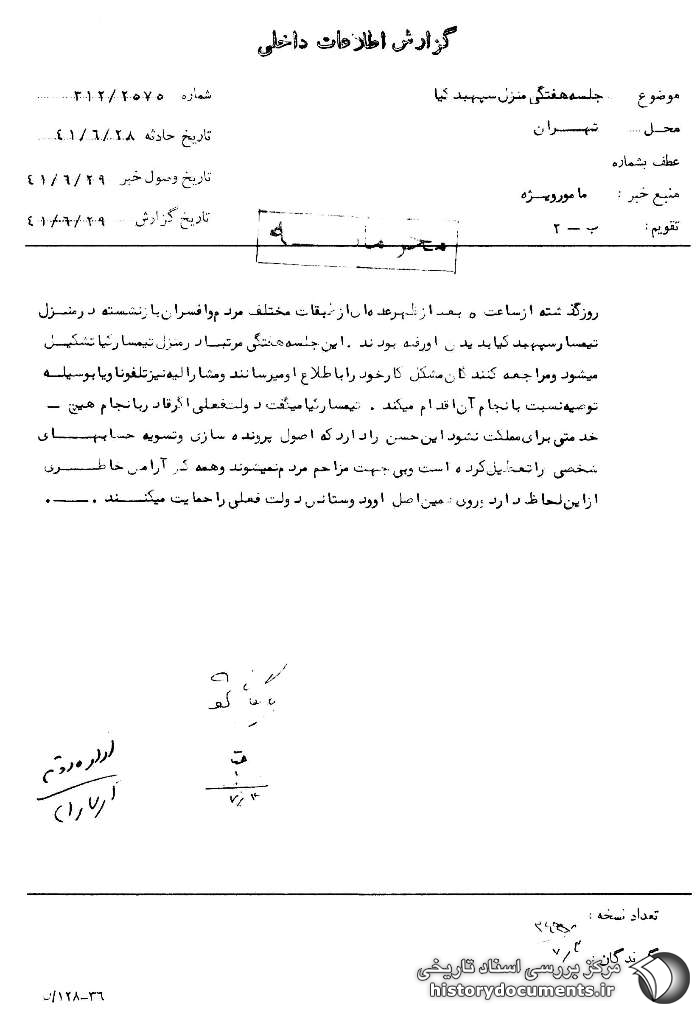 گزارش اطلاعات داخلی
موضوع جلسه هفتگی منزل سپهبد کیا
شماره ۳۱۲/۲۵۷۵
محل تهران
تاریخ حادثه ۴۱/۶/۲۸
عطف بشماره
تاریخ وصول خبر ۴۱/۶/۲۹
منبع خبر : مامور ویژه
تاریخ گزارش ۴۱/۶/۲۹
تقویم : ب – ۲
محرمانه
روز گذشته از ساعت ۵ بعد از ظهر عده ای از طبقات مختلف مردم و افسران بازنشسته در منزل
تیمسار سپهبد کیا بدیدن او رفته بودند . این جلسه هفتگی مرتبا در منزل تیمسار کیا تشکیل
میشود و مراجعه کنندگان مشکل کار خود را باطلاع او میرسانند و مشارالیه نیز تلفونا و یا بوسیله
توصیه نسبت بانجام آن اقدام میکند . تیمسار کیا میگفت دولت فعلی اگر قادر بانجام هیچ –
خدمتی برای مملکت نشود این حسن را دارد که اصول پرونده سازی و تسویه حسابهای
شخصی را تعطیل کرده است و بی جهت مزاحم مردم نمیشوند و همه کس آرامش خاطری
از این لحاظ دارد و روی همین اصل او و دوستانش دولت فعلی را حمایت میکنند .
بایگانی شود
۷/۳
تعداد نسخه :
گیرندگان :
۷/۳
مرکز بررسی اسناد تاریخی
historydocuments.ir
۳۶–۱۲۸/ن